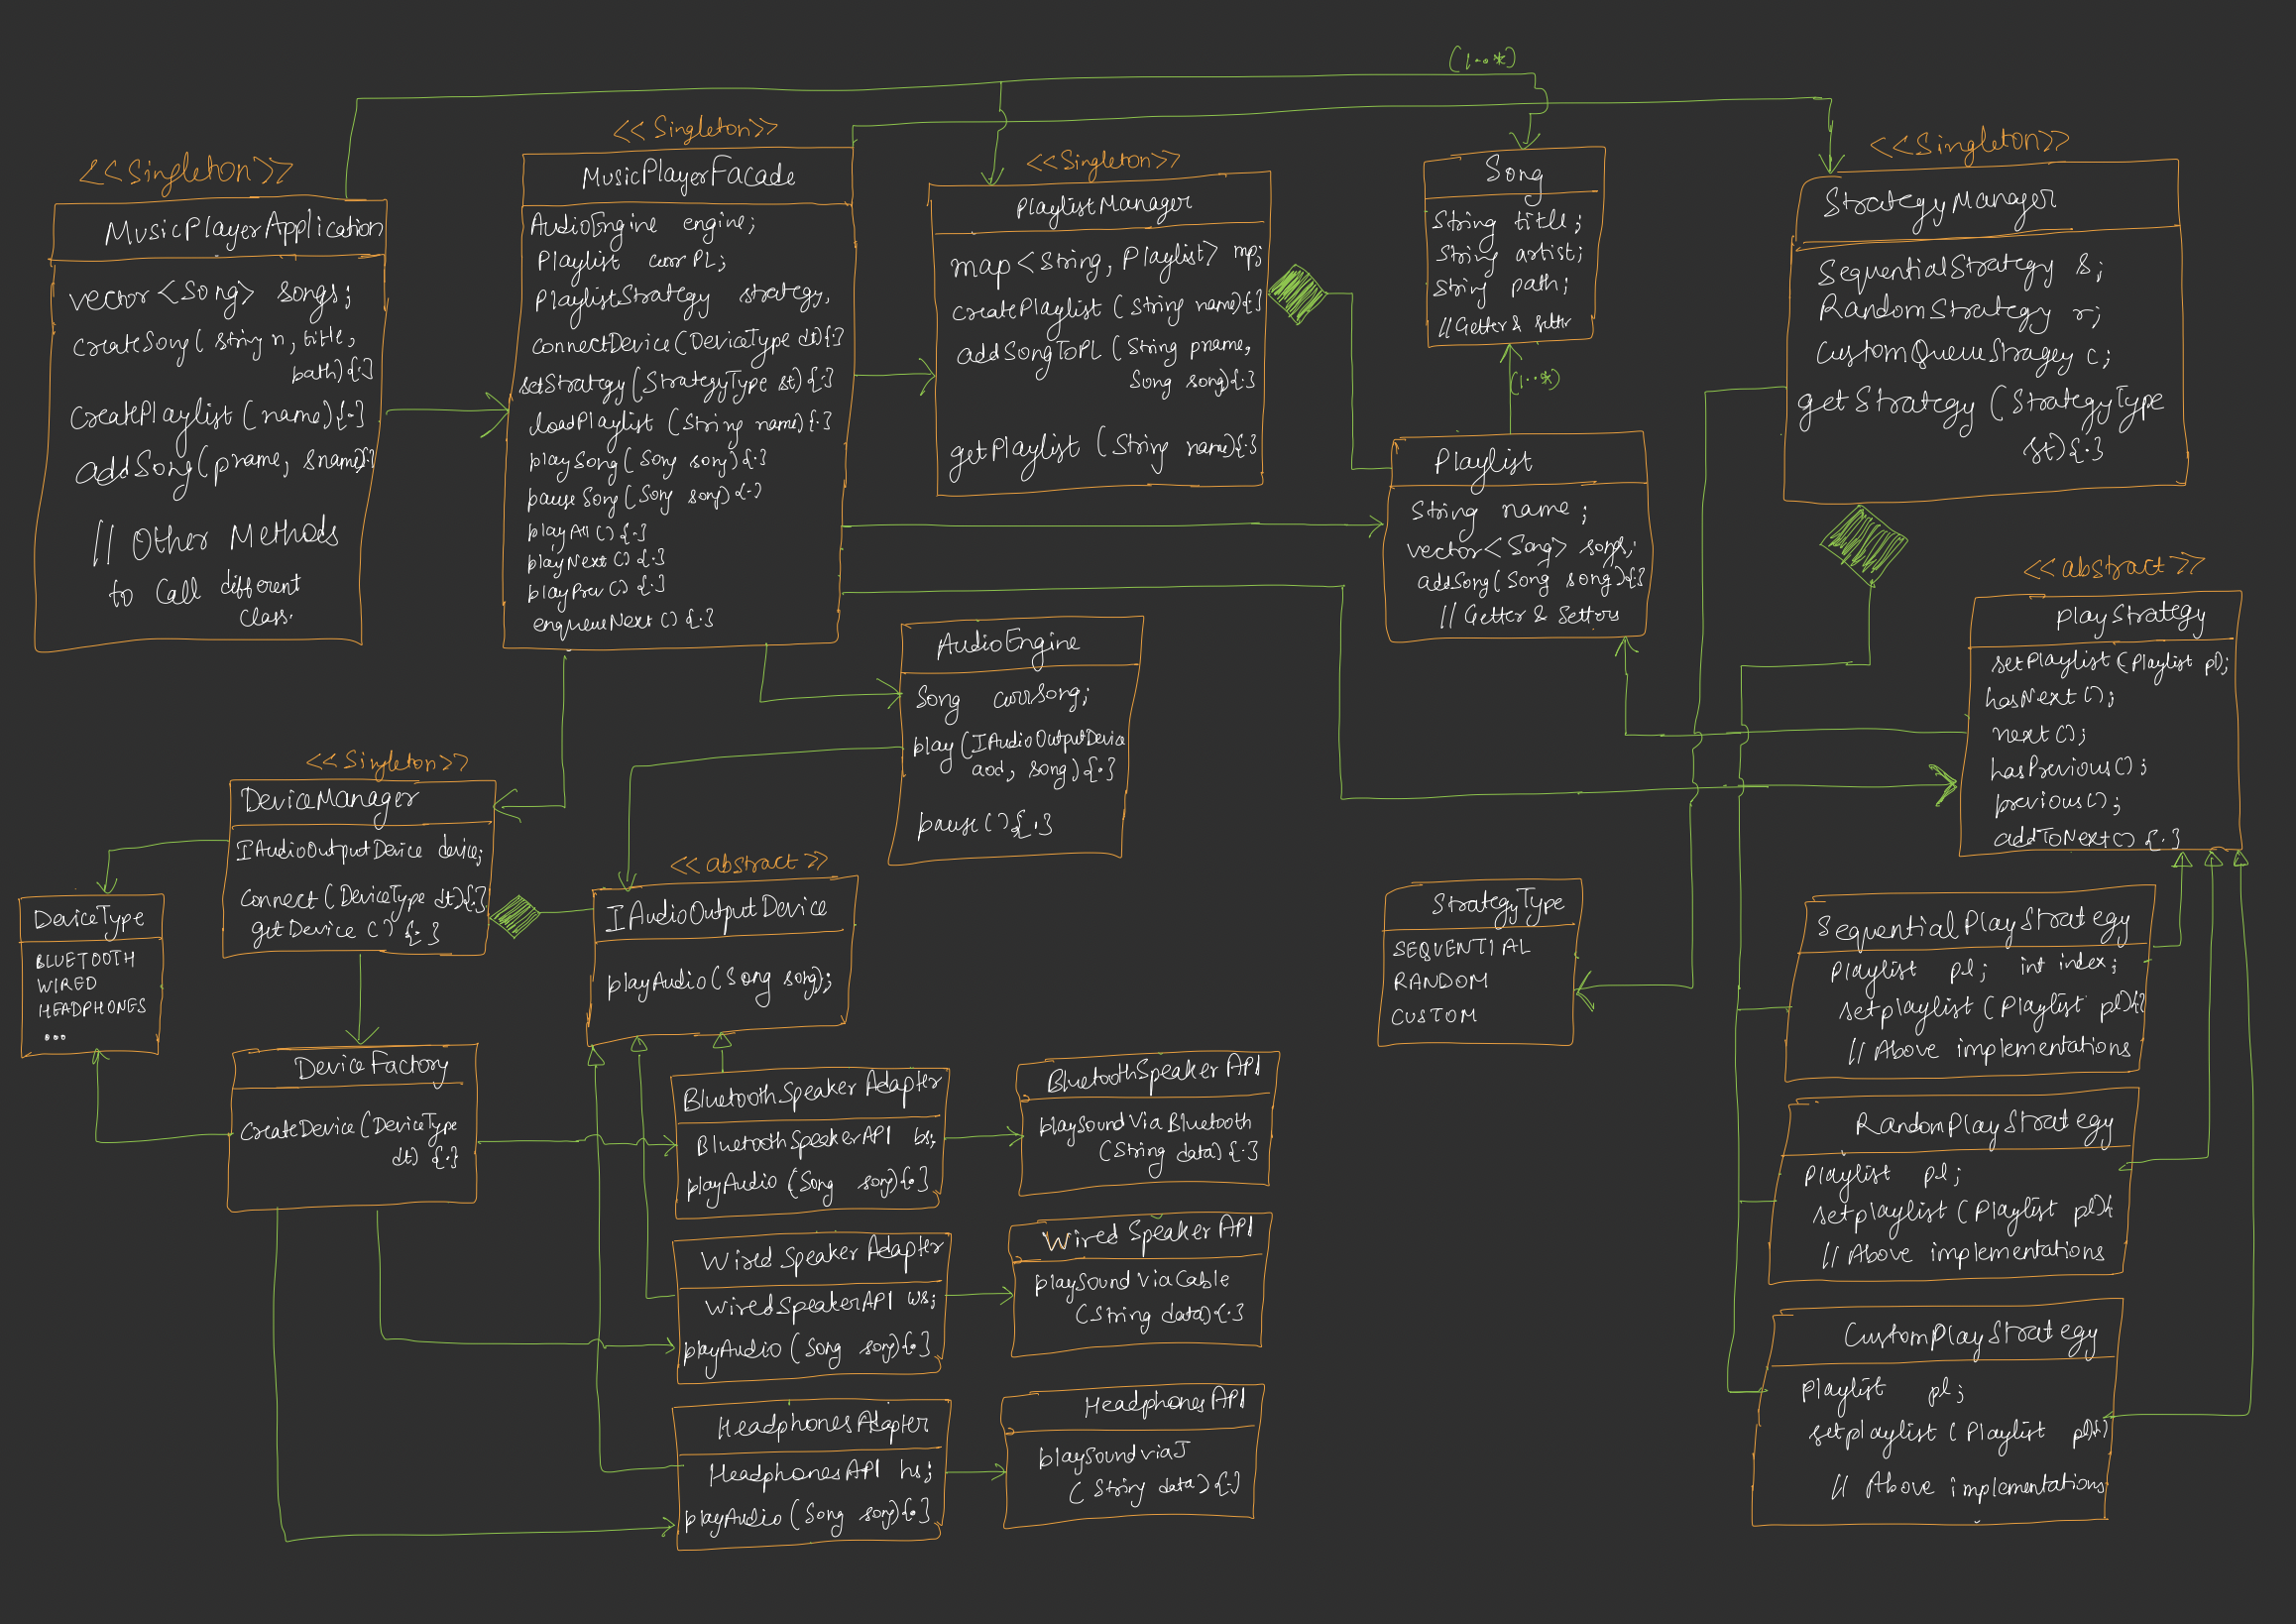 <<Singleton>>
MusicPlayerApplication
vector<Song> songs;
createSong( string n, title,
path){·}
createPlaylist (name){·}
addSong(pname, sname){·}
// Other Methods
to Call different
Class.
<<Singleton>>
MusicPlayerFacade
AudioEngine engine;
Playlist currPL;
PlaylistStrategy strategy,
connectDevice(DeviceType dt){·}
setStrategy(StrategyType st){·}
loadPlaylist (String name){·}
playSong(Song song){·}
pauseSong(Song song){·}
playAll(){·}
playNext(){·}
playPrev(){·}
enqueueNext(){·}
<<Singleton>>
PlaylistManager
map<String, Playlist> mp;
createPlaylist (String name){·}
addSongToPL (String pname,
Song song){·}
getPlaylist (String name){·}
(1··*)
Song
String title;
String artist;
String path;
//Getter & Setter
(1··*)
Playlist
String name;
vector<Song> songs;
addSong(Song song){·}
// Getter & Setters
<<Singleton>>
StrategyManager
SequentialStrategy s;
RandomStrategy r;
CustomQueueStragey c;
getStrategy (StrategyType
st){·}
<<abstract>>
PlayStrategy
setPlaylist (Playlist pl);
hasNext();
next();
hasPrevious();
previous();
addToNext(){·}
AudioEngine
Song currSong;
play(IAudioOutputDevice
aod, song){·}
pause(){·}
<<Singleton>>
DeviceManager
IAudioOutputDevice device;
connect(DeviceType dt){·}
getDevice(){·}
DeviceType
BLUETOOTH
WIRED
HEADPHONES
...
<<abstract>>
IAudioOutputDevice
playAudio(Song song);
StrategyType
SEQUENTIAL
RANDOM
CUSTOM
DeviceFactory
createDevice(DeviceType
dt) {·}
BluetoothSpeakerAdapter
BluetoothSpeakerAPI bs;
playAudio (Song song){·}
BluetoothSpeakerAPI
playSoundViaBluetooth
(String data){·}
WiredSpeakerAdapter
WiredSpeakerAPI ws;
playAudio (Song song){·}
WiredSpeakerAPI
playSoundViaCable
(String data){·}
HeadphonesAdapter
HeadphonesAPI hs;
playAudio (Song song){·}
HeadphonesAPI
playSoundviaJ
(String data){·}
SequentialPlayStrategy
Playlist pl; int index;
setplaylist (Playlist pl){·}
// Above implementations
RandomPlayStrategy
Playlist pl;
setplaylist (Playlist pl){
// Above implementations
CustomPlayStrategy
Playlist pl;
setplaylist (Playlist pl){·}
// Above implementations